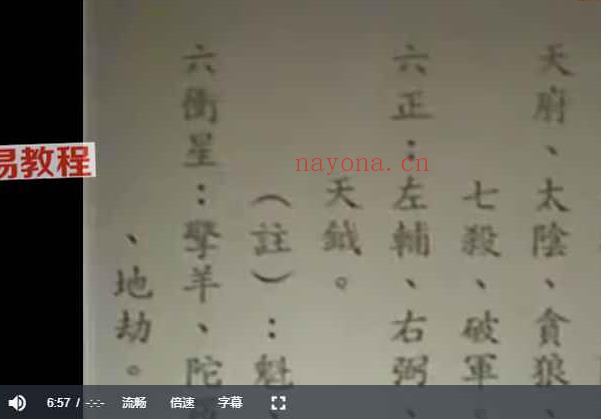 天府、太陰、貪狼
七殺、破軍
六正：左輔、右弼、
天鉞。
（註）：魁
六衝星：擎羊、陀
、地劫。
易教程
nayona.cn
6:57 / -:-
流畅
倍速
字幕